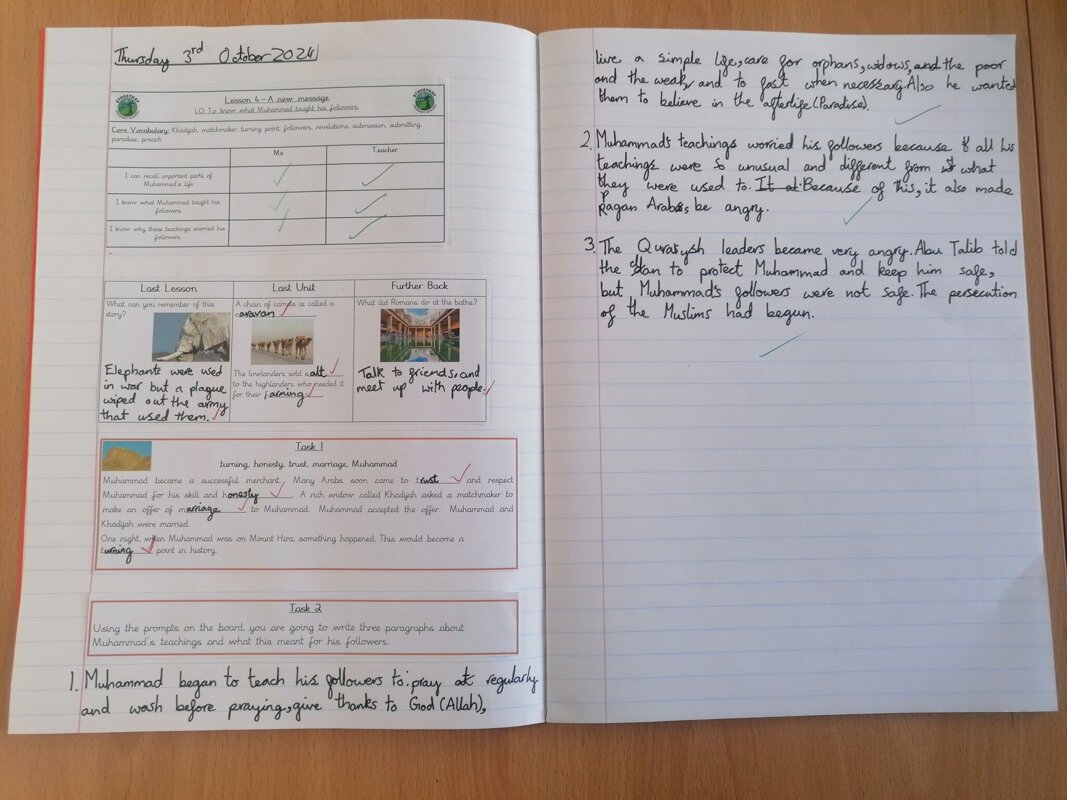 Thursday 3rd October 2024
Lesson 4 – A new message
LO: To know what Muhammad taught his followers.
Core Vocabulary: Khadijah, matchmaker, turning point, followers, revelations, submission, submitting,
paradise, preach.
Me Teacher
I can recall important parts of
Muhammad's life.
I know what Muhammad taught his
followers.
I know why these teachings worried his
followers.
Last Lesson
What can you remember of this
story?
Elephants were used
in war but a plague
wiped out the army
that used them.
Last Unit
A chain of camels is called a
caravan
The lowlanders sold salt
to the highlanders who needed it
for their farming
Further Back
What did Romans do at the baths?
Talk to friends, and
meet up with people.
Task 1
turning, honesty, trust, marriage, Muhammad
Muhammad became a successful merchant. Many Arabs soon came to trust and respect
Muhammad for his skill and honesty. A rich widow called Khadijah asked a matchmaker to
make an offer of marriage to Muhammad. Muhammad accepted the offer. Muhammad and
Khadijah were married.
One night, when Muhammad was on Mount Hira, something happened. This would become a
turning point in history.
Task 2
Using the prompts on the board, you are going to write three paragraphs about
Muhammad's teachings and what this meant for his followers.
1. Muhammad began to teach his followers to: pray at regularly
and wash before praying, give thanks to God (Allah),
live a simple life, care for orphans, widows, and the poor
and the weak, and to fast when necessary. Also he wanted
them to believe in the afterlife (Paradise).
2. Muhammad's teachings worried his followers because all his
teachings were so unusual and different from what
they were used to. It at Because of this, it also made
pagan Arabs, be angry.
3. The Quraysh leaders became very angry. Abu Talib told
the clan to protect Muhammad and keep him safe,
but Muhammad's followers were not safe. The persecution
of the Muslims had begun.